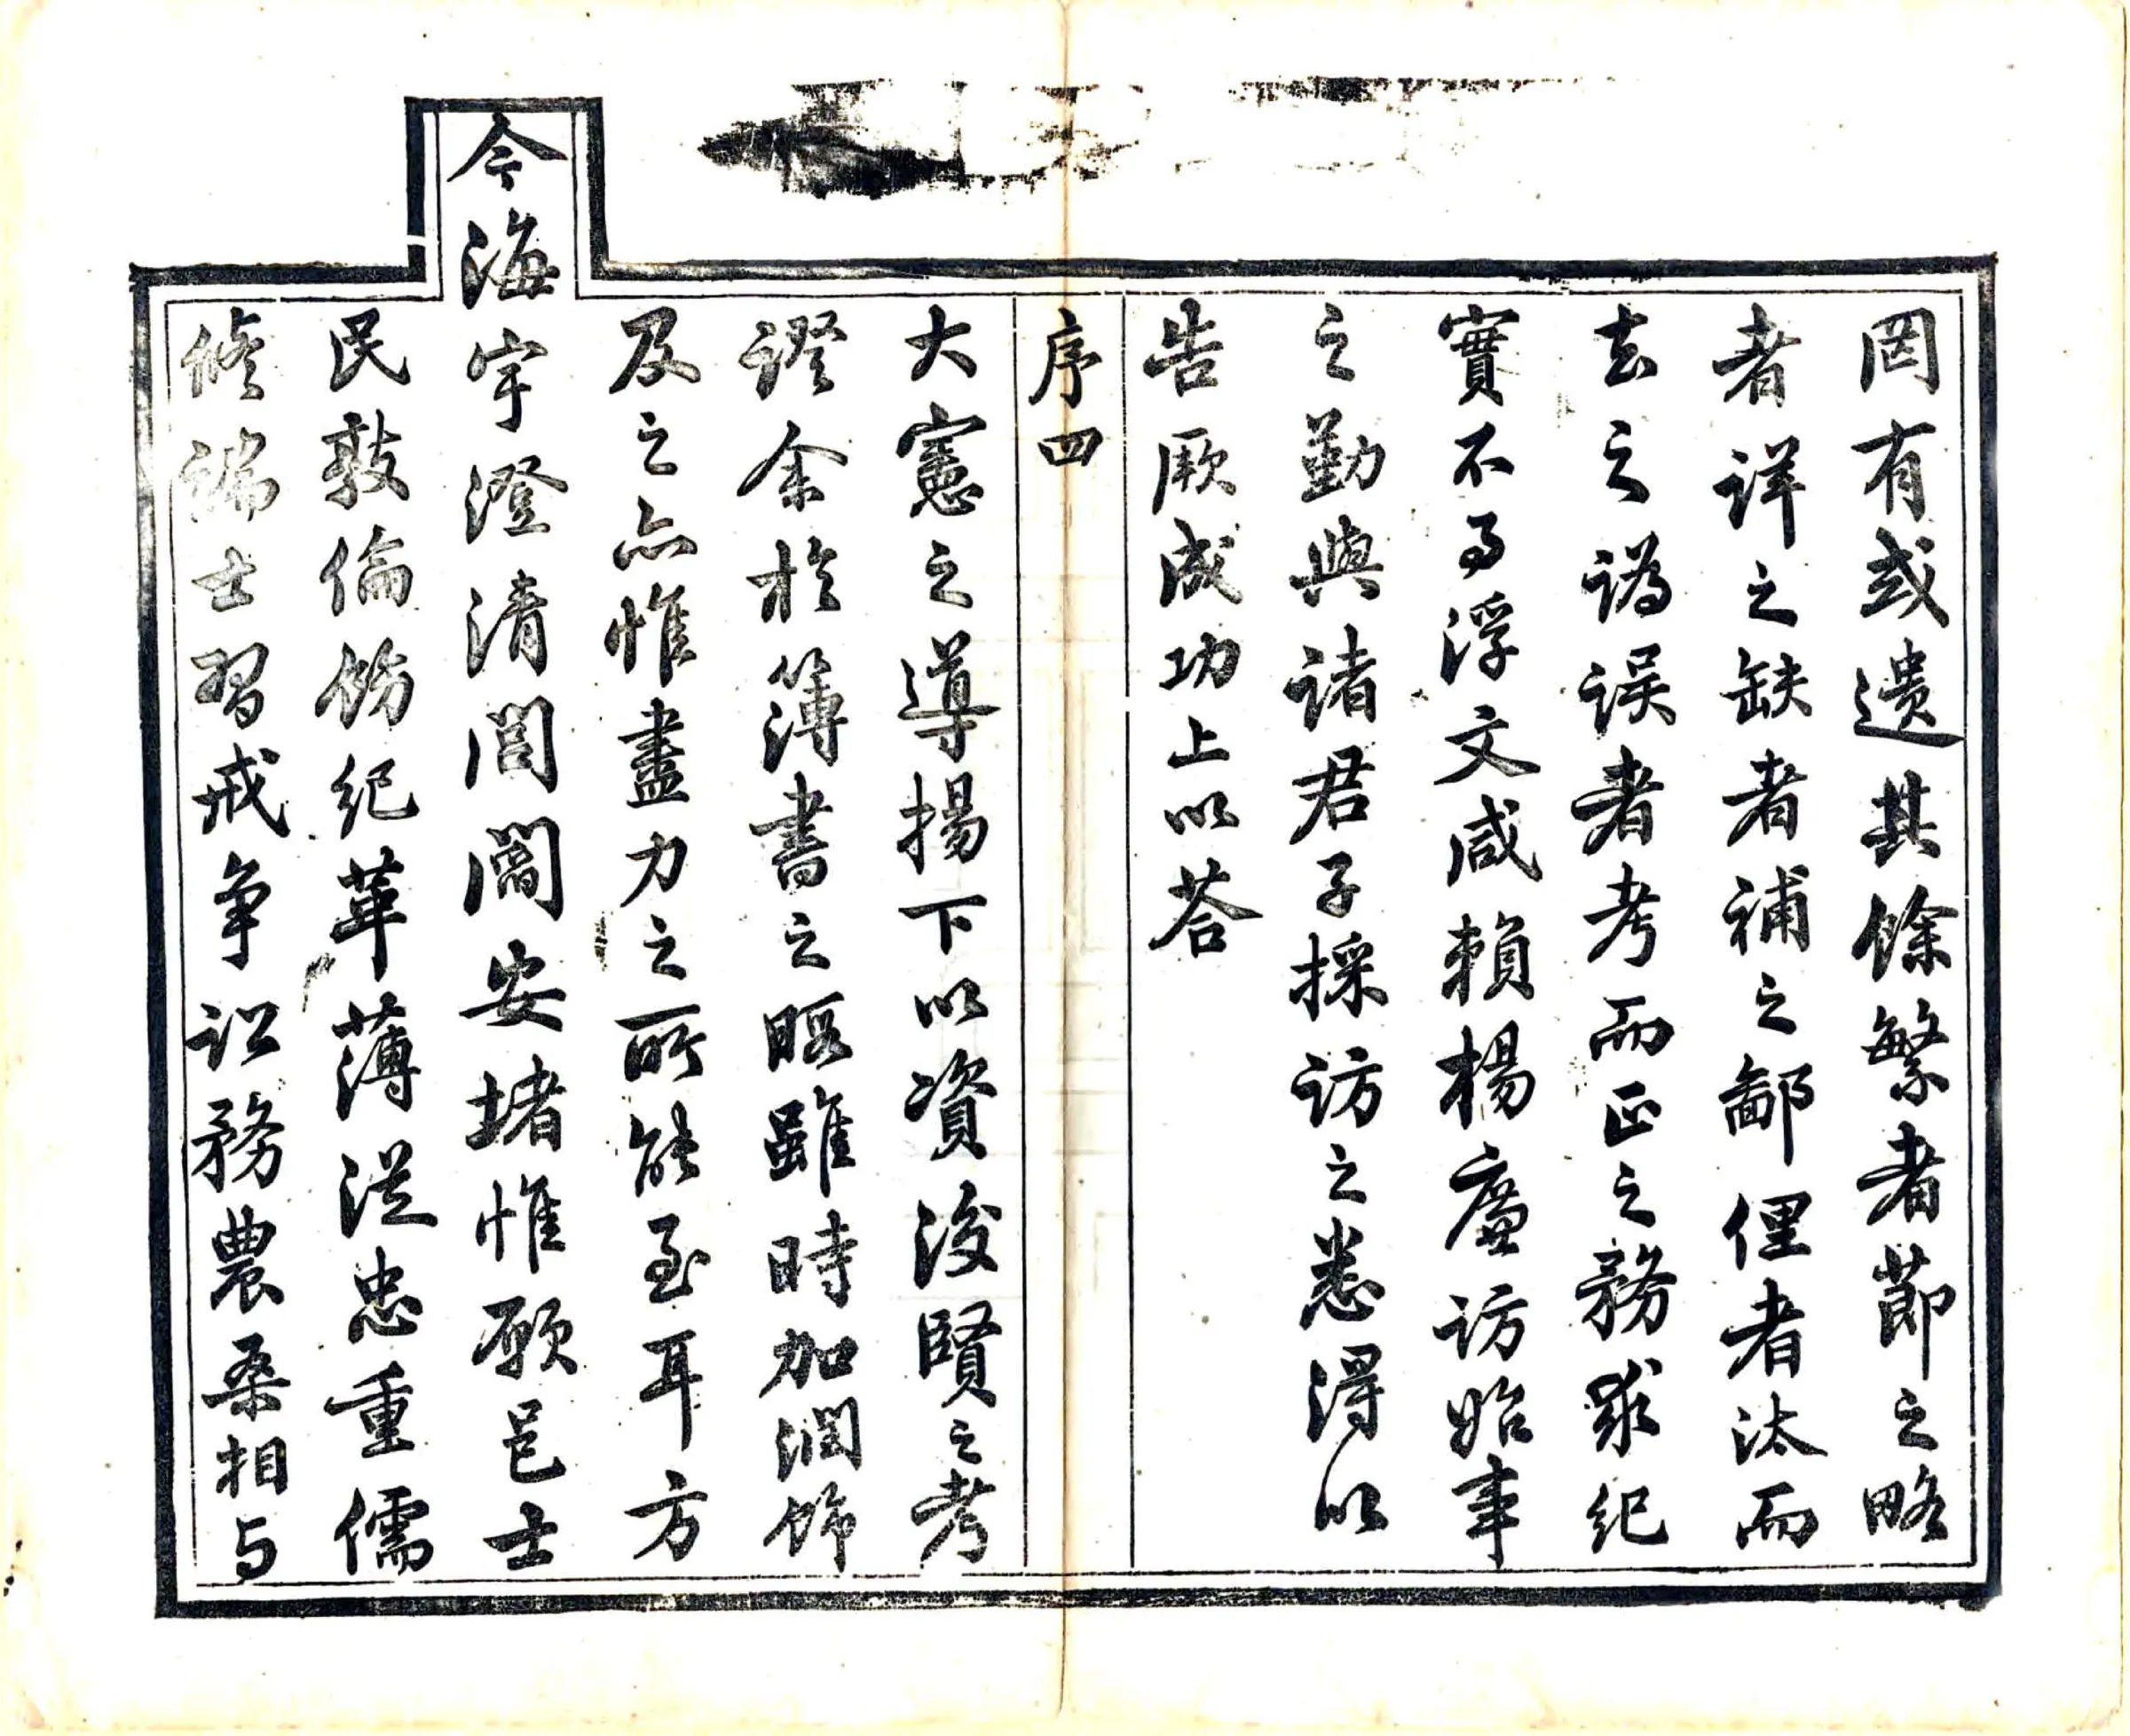 罔有或遺其餘繁者節之略
者詳之缺者補之鄙俚者汰而
去之譌誤者考而正之務求紀
實不為浮文咸賴楊廉訪始事
之勤與諸君子採訪之悉得以
告厥成功上以荅
序四
大憲之導揚下以資後賢之考
證余於簿書之暇雖時加潤飾
及之亦惟盡力之所能至耳方
今海宇澄清閭閻安堵惟願邑士
民敦倫飭紀革薄從忠重儒
修端士習戒争訟務農桑相与